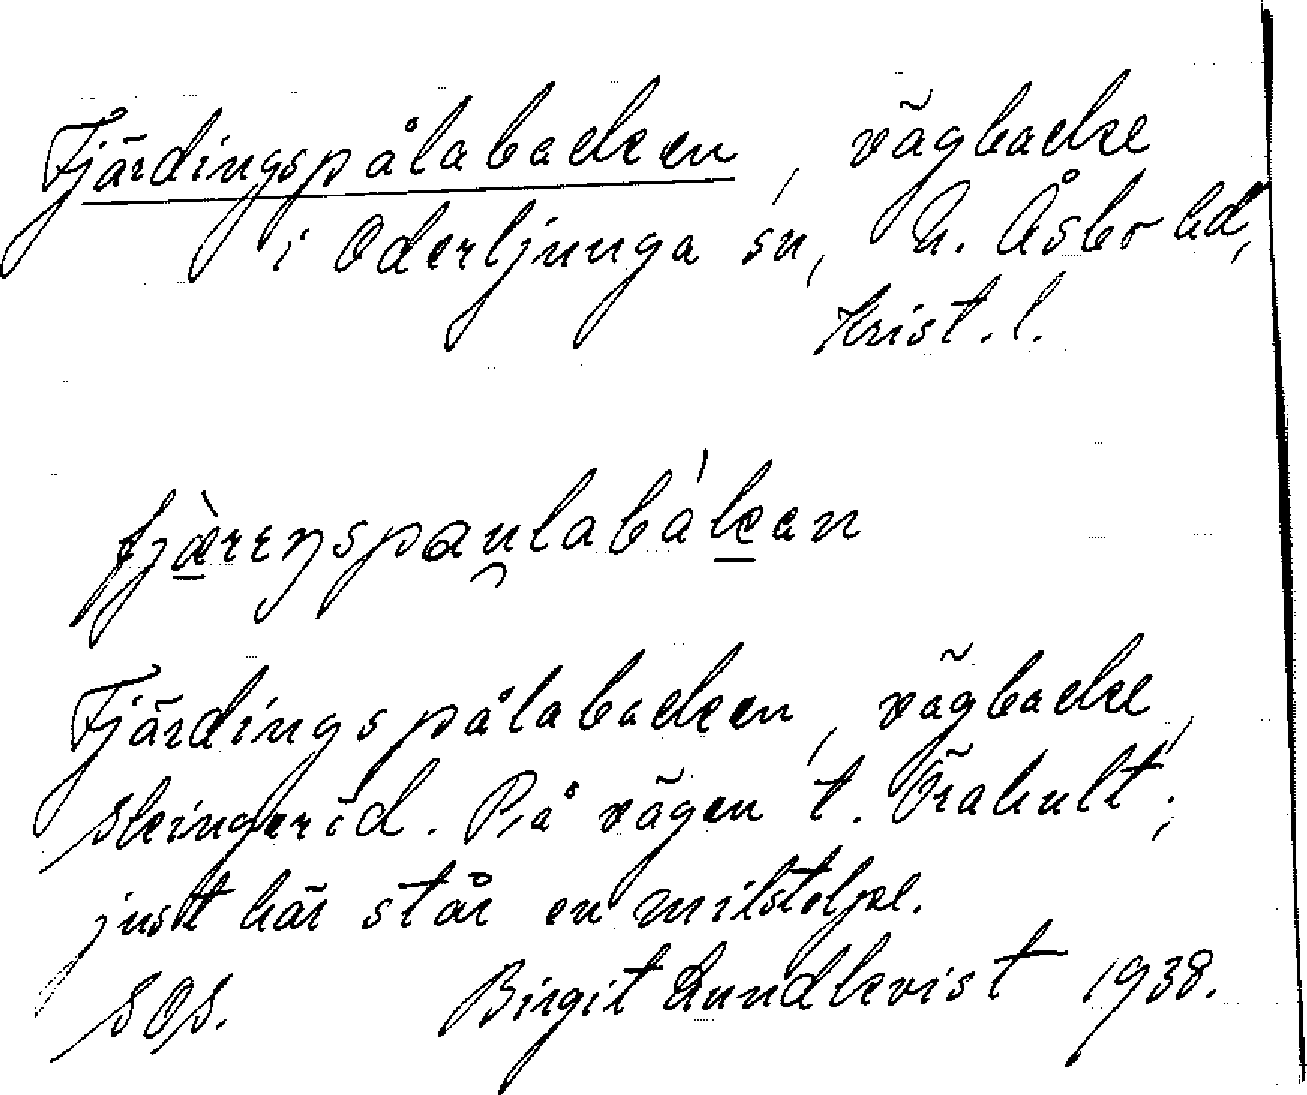 Fjärdingspålabacken, vägbacke
i Oderljunga sn, N. Åsbo hd,
Krist. l.
fjæ̀rɛŋspau̯labákan
Fjärdingspålabacken, vägbacke,
Skingeröd. På vägen t. Örahult;
just här står en milstolpe.
SOS. Birgit Lundkvist 1938.